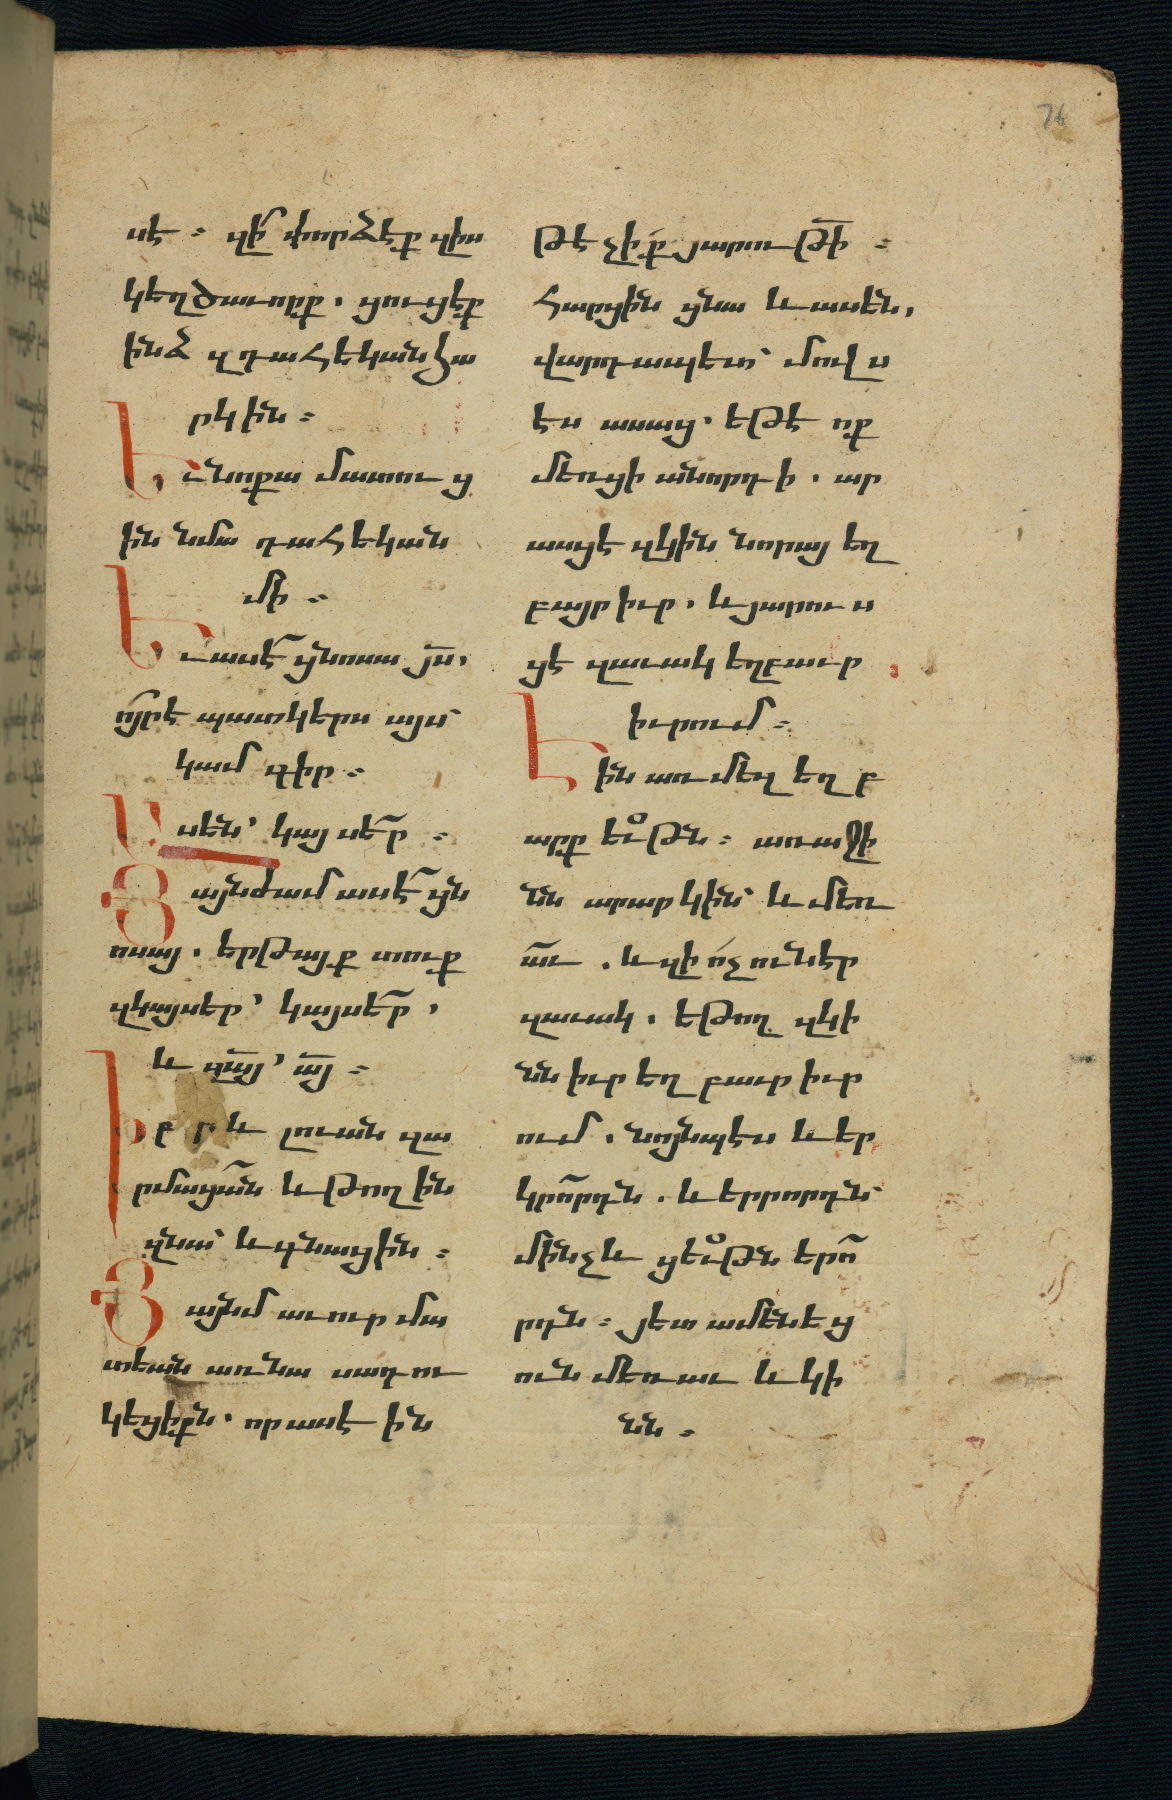 76
սէ ։ զի՞ փորձէք զիս
կեղծաւորք . ցուցէք
ինձ զդահեկան հա
րկին ։
Եւ նոքա մատուց
ին նմա դահեկան
մի ։
Եւ ասէ՞ ցնոսա յս̅,
ո՞յրէ պատկերս այս՝
կամ գիր ։
Ասեն՝ կայսէ՞ր ։
Յայնժամ ասէ՞ ցն
ոսայ . երթայք տուք
զկայսեր՝ կայսե՞ր ,
և զա̅յ՝ ա̅յ ։
Իբրև լուան զա
րմացա՞ն և թողին
զնա՝ և գնացին ։
Յայնմ աւուր մա
տեան առնա սադու
կեցիքն . որ ասէին
թէ չիք յարութի̅ ։
Հարցին ցնա և ասեն,
վարդապետ՝ մովս
ես ասաց . եթէ ոք
մեռցի անորդի . ար
ասցէ զկին նորայ եղ
բայր իւր . և յարուս
ցէ զաւակ եղբաւր
իւրում ։
Էին առ մեզ եղբ
արք եւ՟թն ։ առաջի
նն արար կին՝ և մեռ
ա՟ւ . և զի ո՛չ ունէր
զաւակ . եթող զկի
նն իւր եղբաւր իւր
ում . նոյնպէս և եր
կրո՟րդն . և երրորդն՝
մինչև ցեւ՟թն երո՟
րդն ։ յետ ամենեց
ուն մեռաւ և կի
նն ։